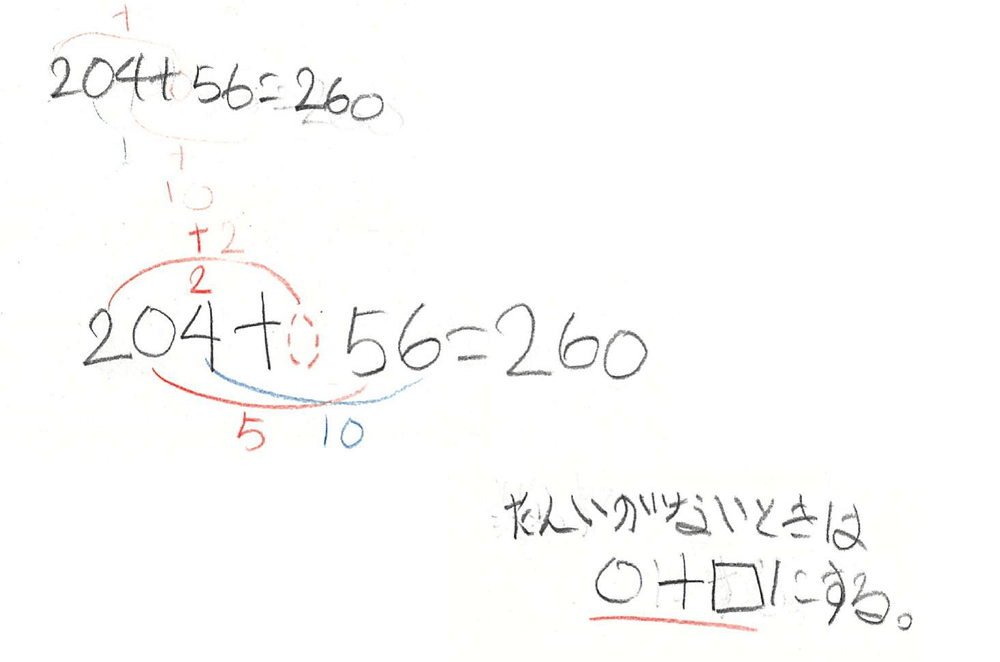 +
204+56=260
1 +
10
+2
2
204+0 56=260
5 10
たんいがないときは
0+□にする。